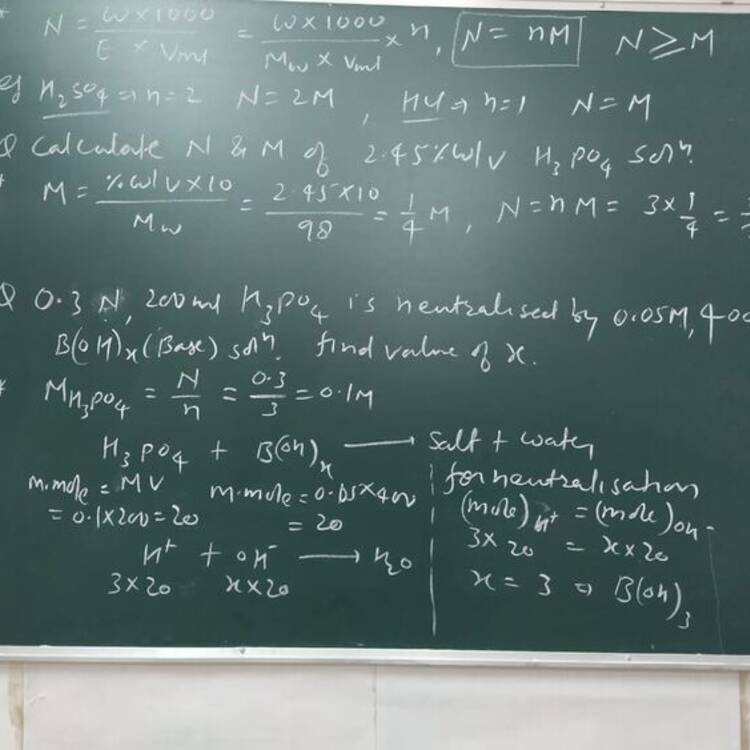 N = W×1000 / E × Vml = W×1000 / Mw × Vml × n, N = nM N ≥ M
eg H2SO4 ⇒ n=2 N = 2M, HCl ⇒ n=1 N = M
Q Calculate N & M of 2.45% W/V H3PO4 soln.
* M = % W/V × 10 / Mw = 2.45×10 / 98 = 1/4 M, N = nM = 3 × 1/4 =
Q 0.3 N, 200 ml H3PO4 is neutralised by 0.05M, 400
B(OH)x (Base) soln. find value of x.
* MH3PO4 = N/n = 0.3/3 = 0.1M
H3PO4 + B(OH)x ⟶ Salt + water
m.mole = MV m.mole = 0.05×400
= 0.1×200 = 20 = 20
H+ + OH- ⟶ H2O
3×20 x×20
for neutralisation
(mole)H+ = (mole)OH-
3×20 = x×20
x = 3 ⇒ B(OH)3